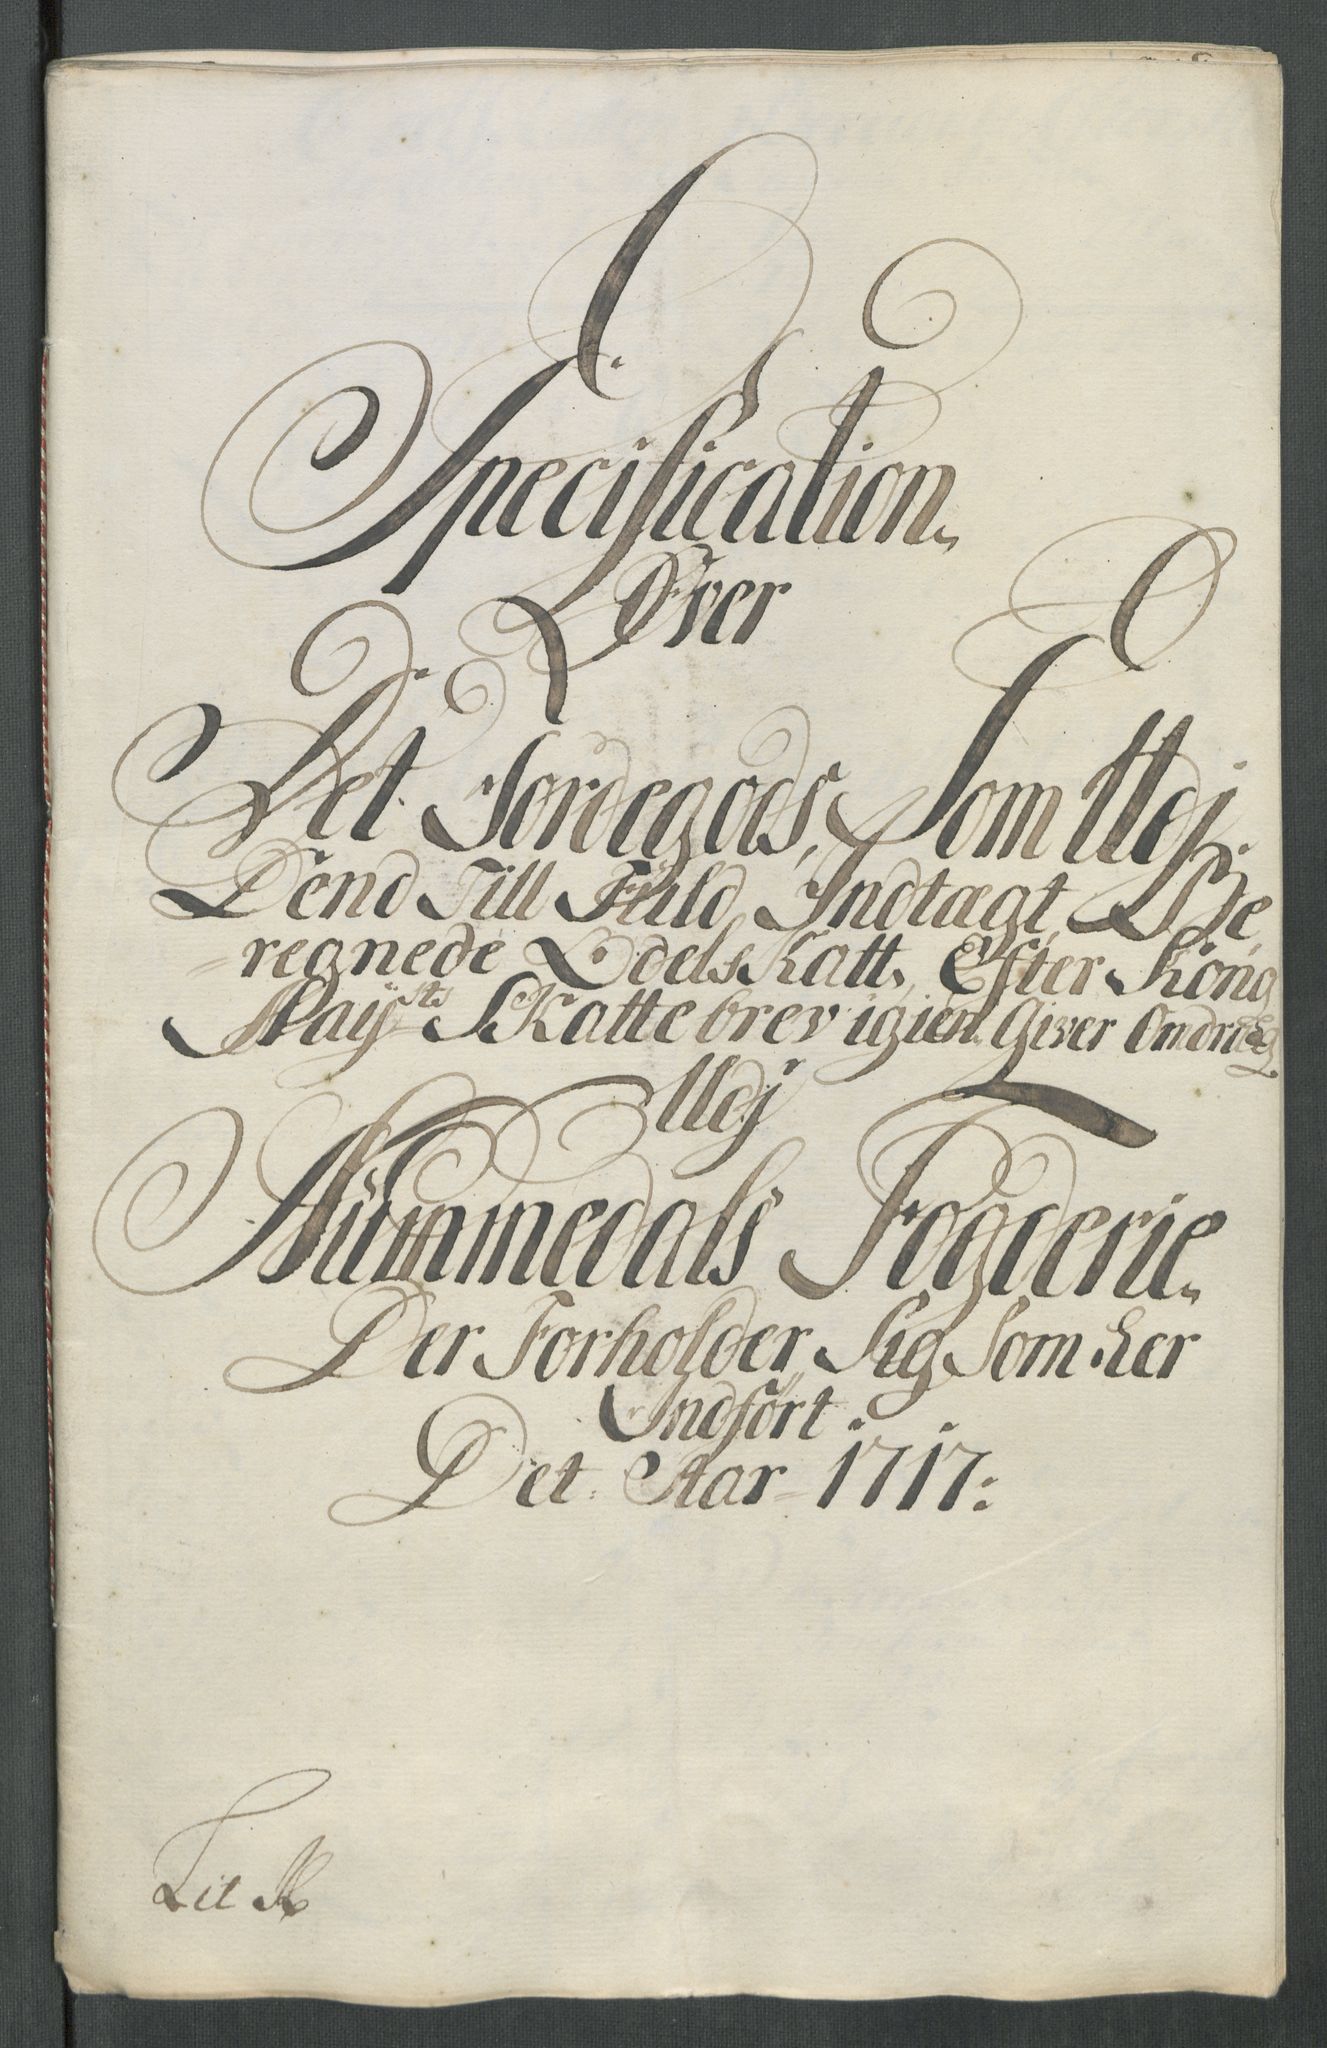 Specification
Over
Det Jordegods, Som Udj
Dend Till Fuld Indtægt Be,
regnede OdelsKatt, Efter Kong
May:sts SKattebrev igien Giver
Udj
Nummedals Fogderie
Der Forholder Sig Som her
Indført
Det Aar 1717:
Lit